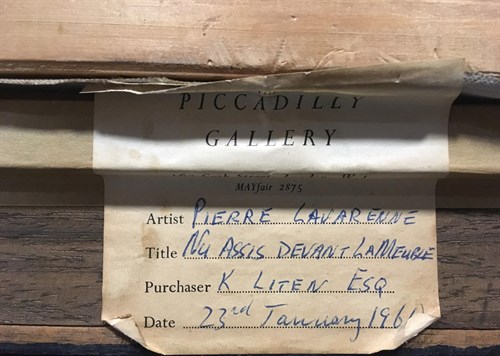 PICCADILLY
GALLERY
MAYfair 2875
Artist PIERRE LAVARENNE
Title NU ASSIS DEVANT LA MEUBLE
Purchaser K LITEN ESQ
Date 23rd January 1961